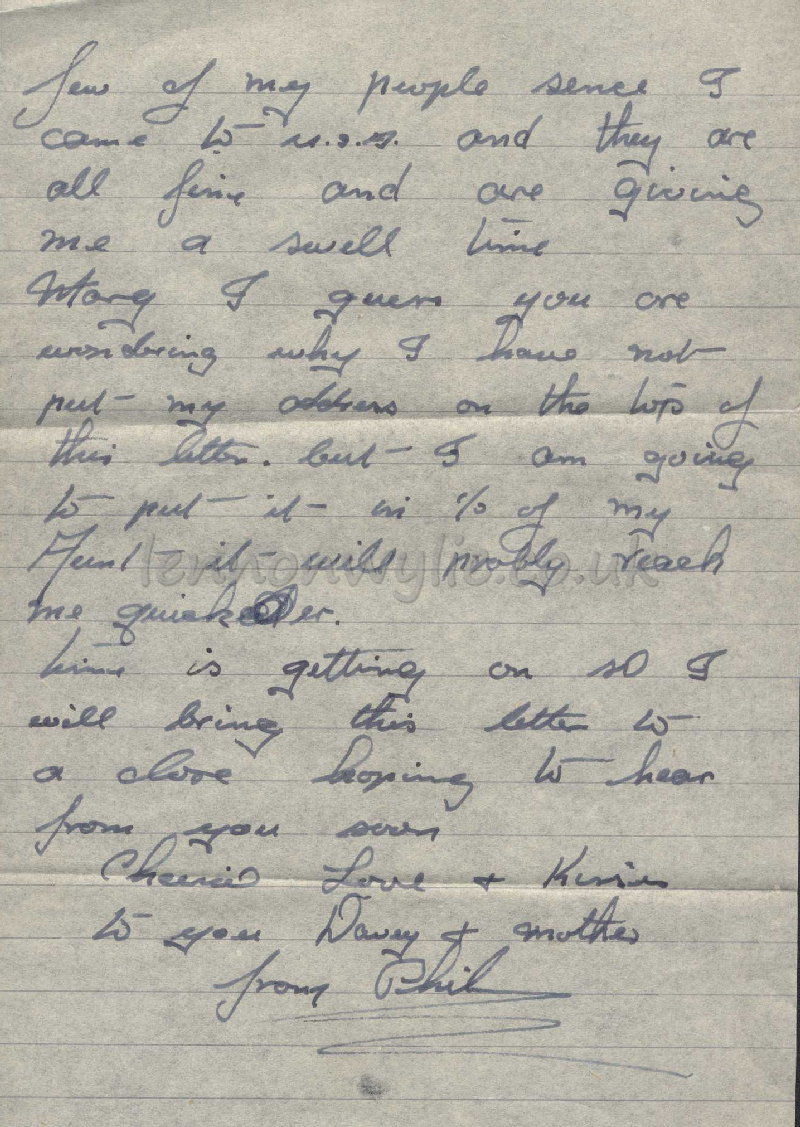 few of my people sence I
came to u.s.a. and they are
all fine and are giving
me a swell time
Mary I guess you are
wondring why I have not
put my address on the top of
this letter. but I am going
to put it in % of my
Aunt it will probly reach
me quicker.
time is getting on so I
will bring this letter to
a close hoping to hear
from you soon
Cheerio Love + Kisses
to you Davey + mother
from Phil
lennonwylie.co.uk